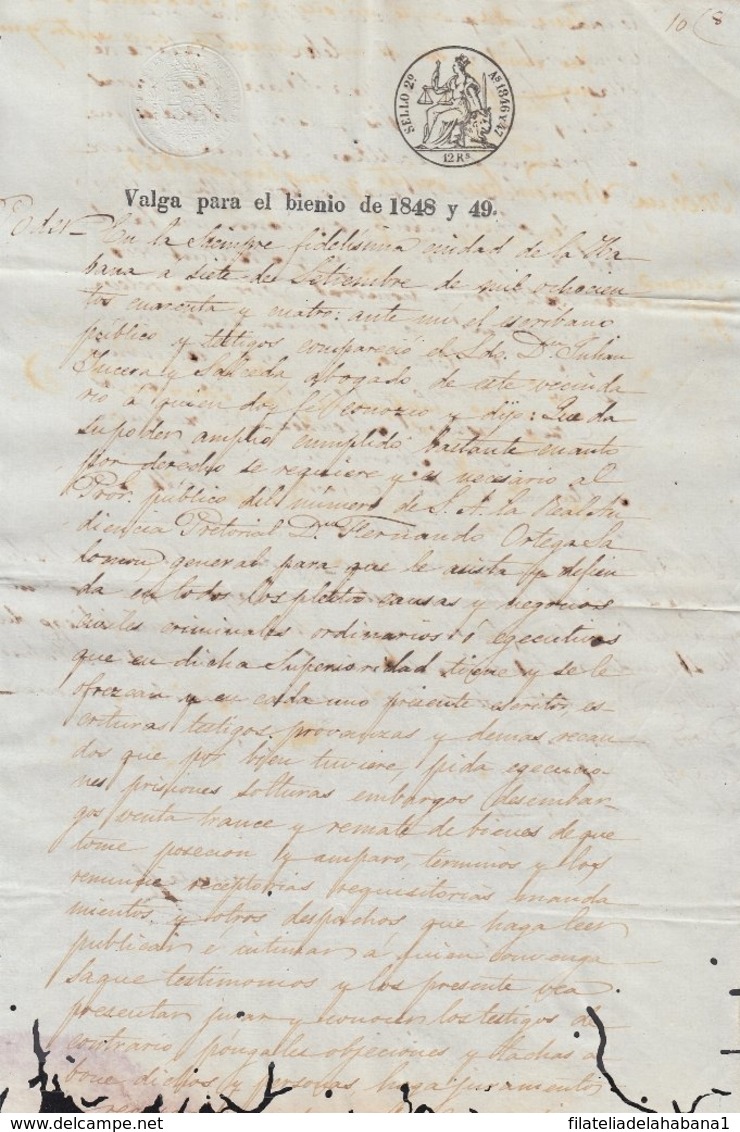 10 8
SELLO 2º AS 1846 Y 47
12 Rs
Valga para el bienio de 1848 y 49.
Poder En la siempre fidelísima ciudad de la Ha
bana a siete de Setiembre de mil ochocien
tos cuarenta y cuatro: ante mi el escribano
público y testigos compareció el Ldo. Dn. Julian
y Salceda, abogado de este vecinda
rio á quien doy fé conozco y dijo: Que da
su poder amplio cumplido bastante cuanto
por derecho se requiere y es necesario al
Pror. público del número de S. A. la Real Au
diencia Pretorial Dn. Fernando Ortega Sa
lomon general para que le asista y defien
da en todos los pleitos causas y negocios
civiles criminales ordinarios ó egecutivos
que en dicha Superioridad tiene y se le
ofrezcan y en cada uno presente escritos, es
crituras testigos provanzas y demas recau
dos que por bien tuviere, pida egecucio
nes prisiones solturas embargos desembar-
gos venta trance y remate de bienes de que
tome posecion y amparo, terminos y los
renuncie receptorias requisitorias manda
mientos y otros despachos que haga leer
publicar e intimar a quien convenga
saque testimonios y los presente vea
presentar jurar y conocer los testigos del
contrario pongales objeciones y tachas a
bone dichos y personas haga juramentos
filateliadelahabana1